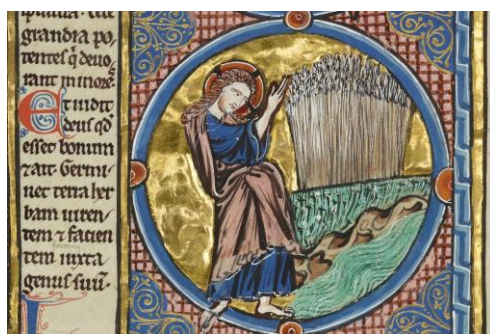 grandia po,
tentes q̃ deuo,
rant minores.
Et uidit
deus qd̓
esset bonum
⁊ ait. Germi,
net terra her
bam uiren,
tem ⁊ facien
tem iuxta
genus suũ.